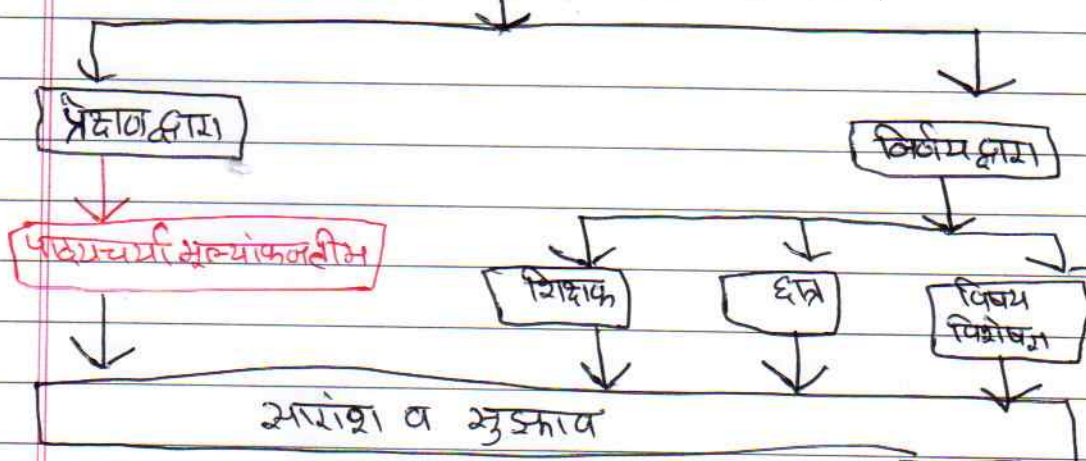 प्रेक्षण द्वारा
निर्णय द्वारा
पाठ्यचर्या मूल्यांकन टीम
शिक्षक
छात्र
विषय
विशेषज्ञ
सारांश व सुझाव